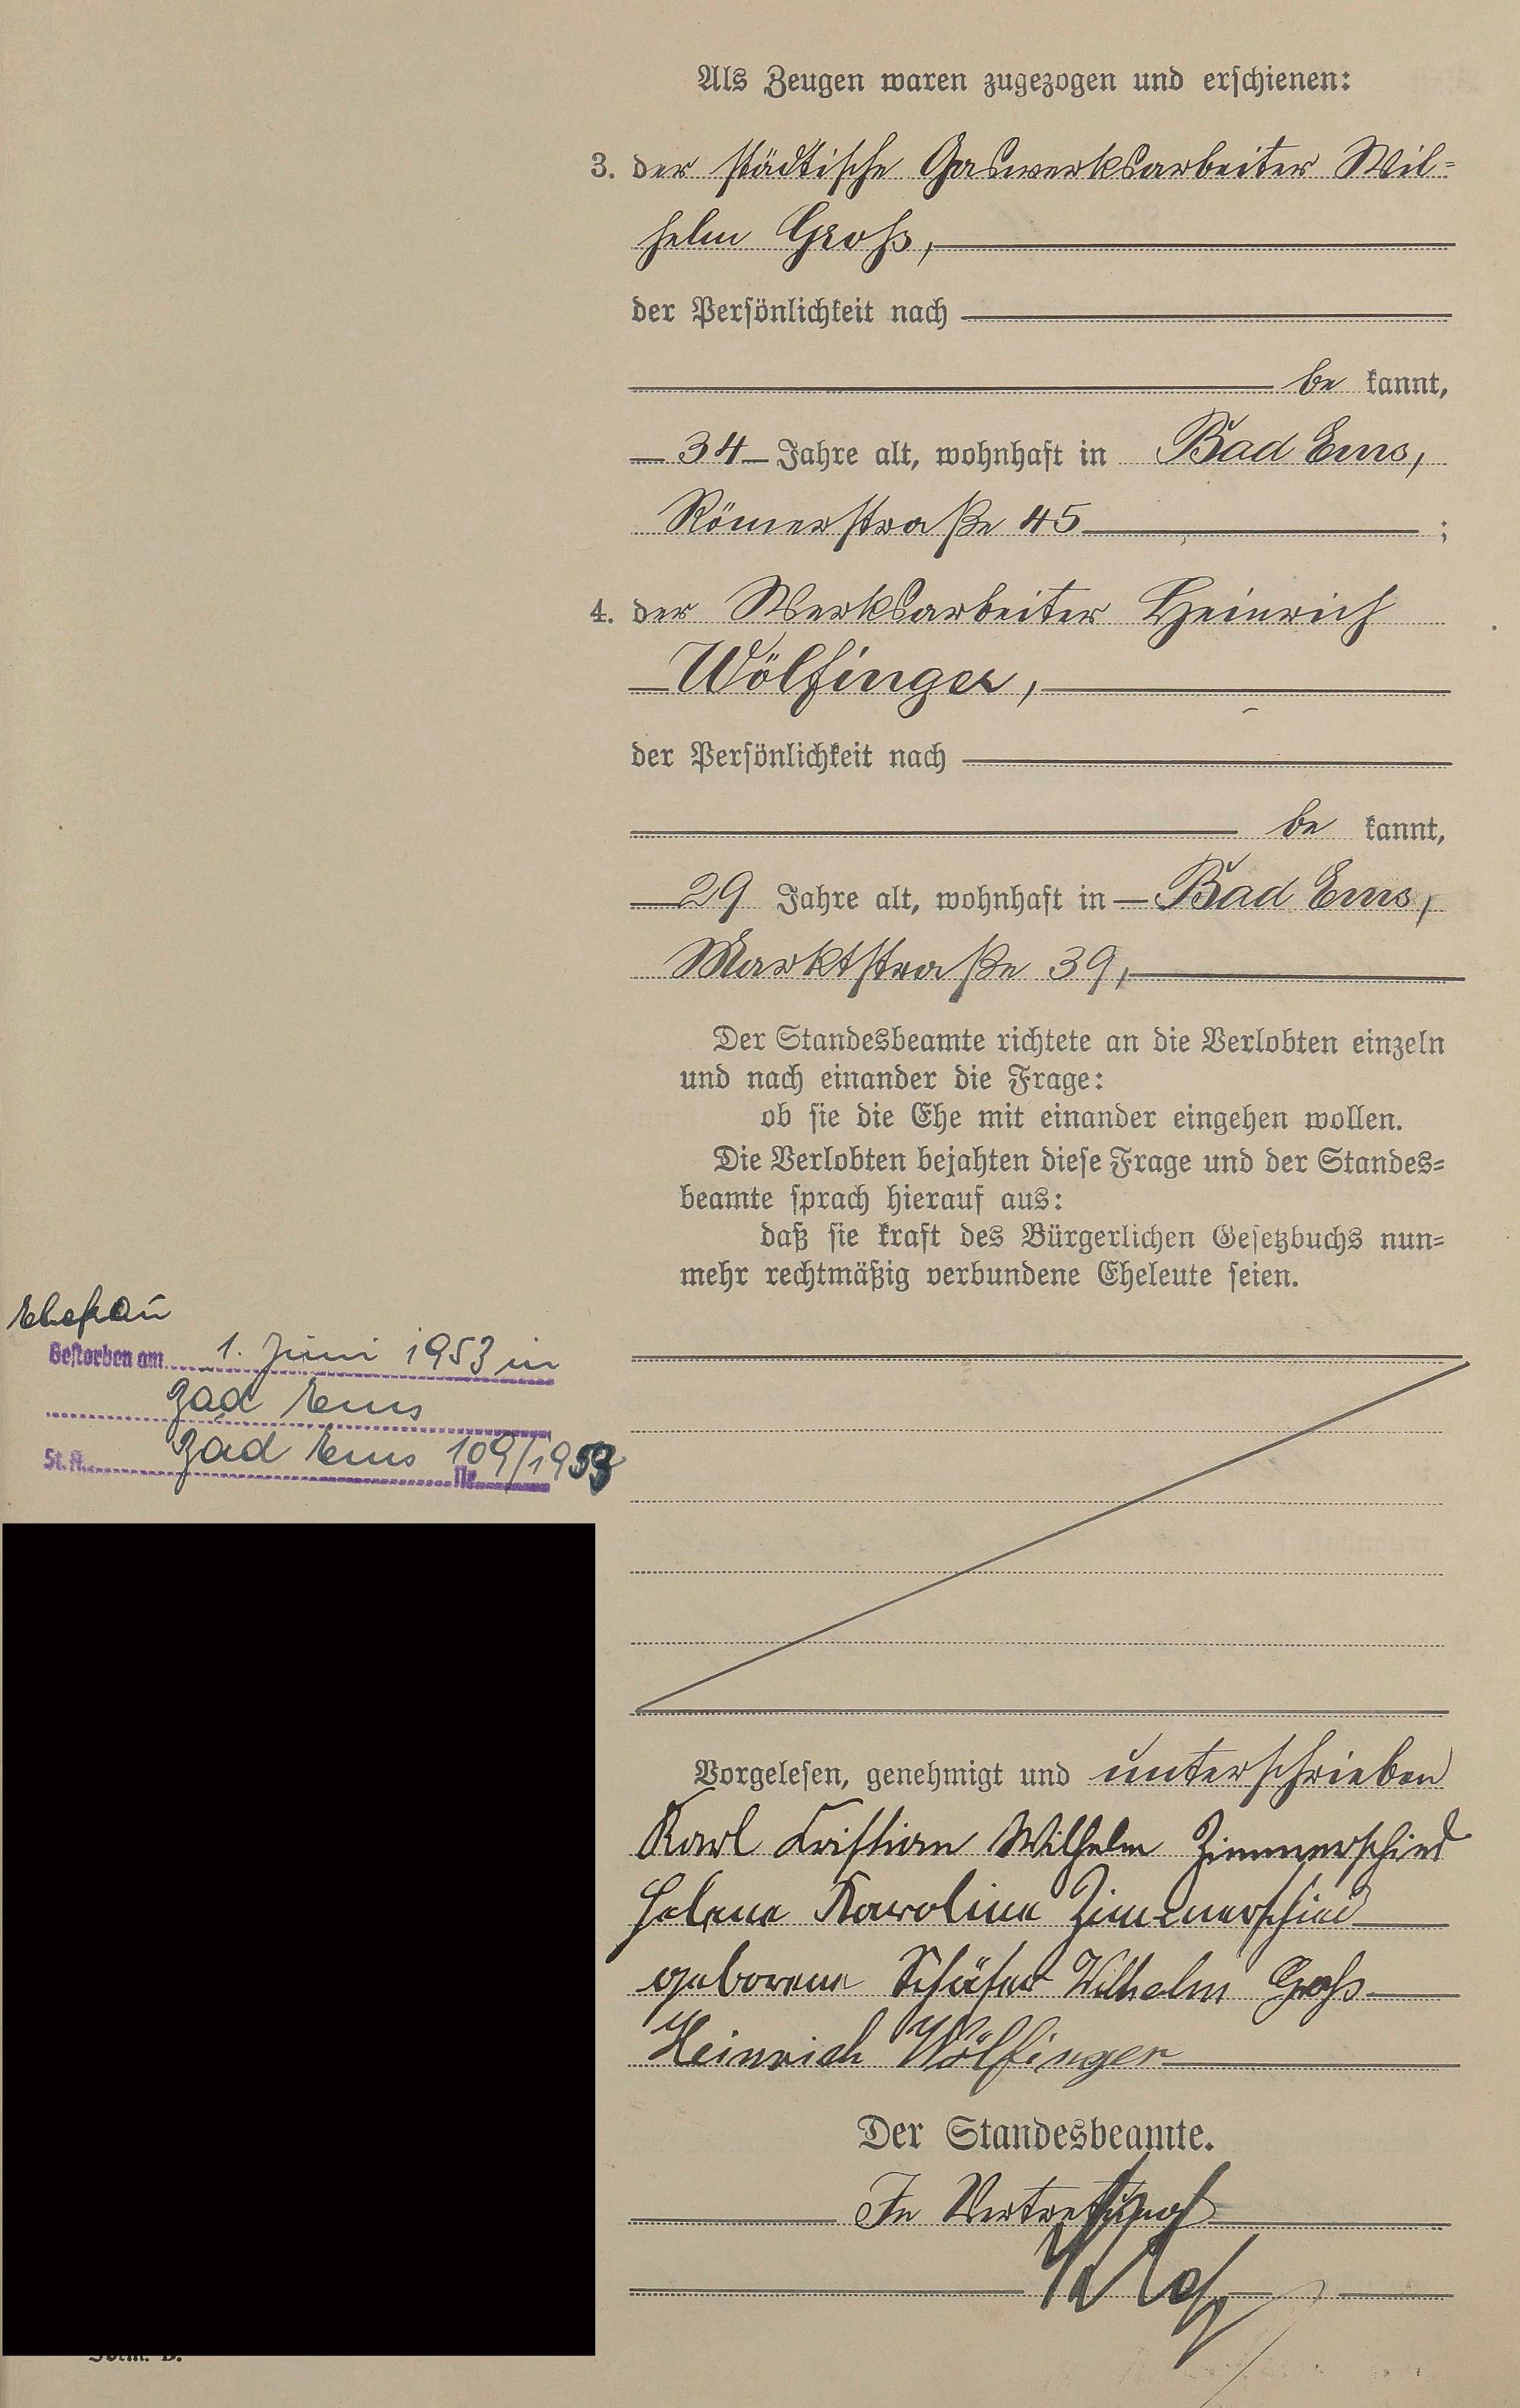 Als Zeugen waren zugezogen und erschienen:
3. der städtische Gaswerksarbeiter Wil=
helm Groß,
der Persönlichkeit nach
be kannt,
34 Jahre alt, wohnhaft in Bad Ems,
Römerstraße 45 ;
4. der Werksarbeiter Heinrich
Wölfinger,
der Persönlichkeit nach
be kannt,
29 Jahre alt, wohnhaft in Bad Ems,
Marktstraße 39,
Der Standesbeamte richtete an die Verlobten einzeln
und nach einander die Frage:
ob sie die Ehe mit einander eingehen wollen.
Die Verlobten bejahten diese Frage und der Standes=
beamte sprach hierauf aus:
daß sie kraft des Bürgerlichen Gesetzbuchs nun=
mehr rechtmäßig verbundene Eheleute seien.
Ehefrau
Gestorben am 1. Juni 1953 in
Bad Ems
St. A. Bad Ems Nr. 109/1953
Vorgelesen, genehmigt und unterschrieben
Karl Kristian Wilhelm Zimmerschied
Helene Karoline Zimmerschied
geborene Schäfer Wilhelm Groß
Heinrich Wölfinger
Der Standesbeamte.
In Vertretung